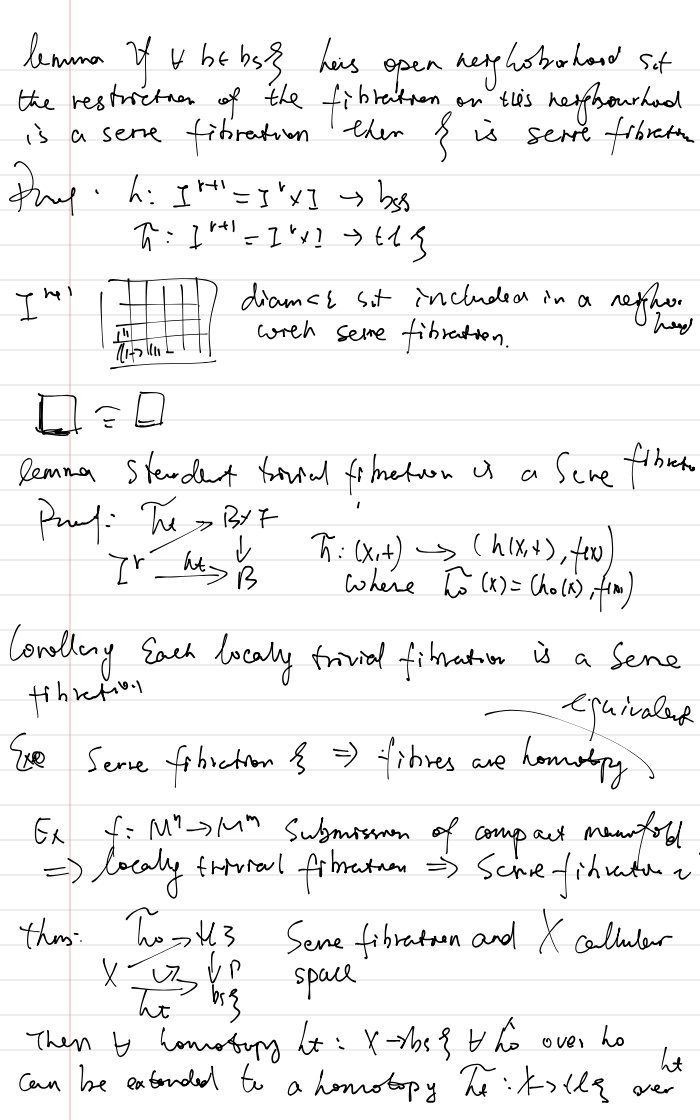 lemma If ∀ b∈ bsξ has open neighborhood s.t
the restriction of the fibration on this neighbourhood
is a serre fibration then ξ is serre fibration
Proof. h: I^{r+1} = I^r×I → bsξ
h̃: I^{r+1} = I^r×I → tlξ
I^{r+1} diam<ε s.t included in a neighborhood
with serre fibration.
≅
lemma Standart trivial fibration is a Serre fibration
Proof: h̃t → B×F
I^r ht → B h̃: (x,t) → (h(x,t), f(x))
where h̃0 (x) = (h0(x), f(x))
Corollary Each locally trivial fibration is a Serre
fibration
equivalent
Exe Serre fibration ξ ⇒ fibres are homotopy
Ex f: M^n → M^m Submission of compact manifold
⇒ locally trivial fibration ⇒ Serre fibration
thm: h̃0 → tlξ Serre fibration and X cellular
X ht → bsξ ↓ p space
Then ∀ homotopy ht : X → bsξ ∀ h̃0 over h0
can be extended to a homotopy h̃t : X → tlξ over ht